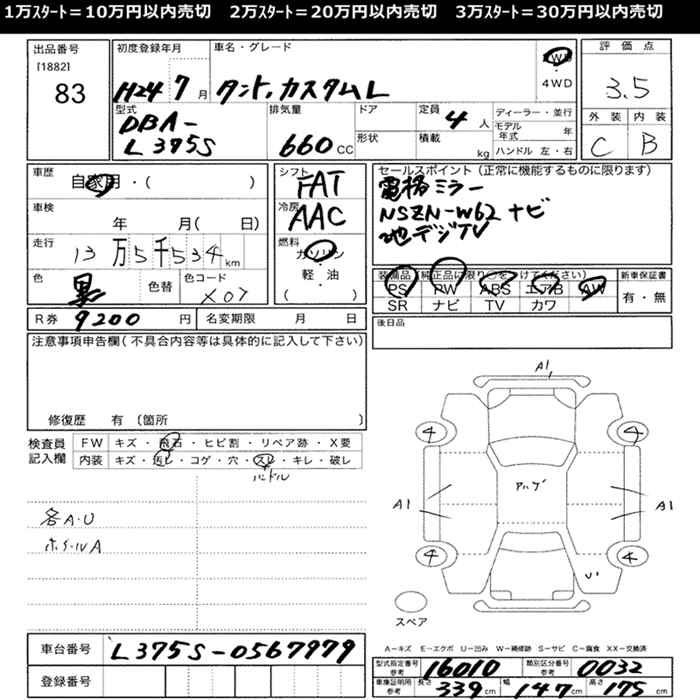 1万スタート＝10万円以内売切　2万スタート＝20万円以内売切　3万スタート＝30万円以内売切
出品番号
[1882]
83
初度登録年月
H24 7 月
車名・グレード
タント．カスタムL
4WD
評価点
3.5
型式
DBA-
L375S
排気量
660 CC
ドア
形状
定員
4 人
積載
kg
ディーラー・並行
モデル年式
年
ハンドル 左・右
外装
C
内装
B
車歴
自家用・( )
車検
年 月( 日)
走行
13万5千534km
色
黒
色替
色コード
X07
シフト
FAT
冷房
AAC
燃料
ガソリン
軽・油
( )
セールスポイント(正常に機能するものに限ります)
電格ミラー
NSZN-W62 ナビ
地デジTV
装備品(純正品に限り○をつけてください)
PS PW ABS エアB AW
SR ナビ TV カワ
新車保証書
有・無
R券 9200 円
名変期限 月 日
後日品
注意事項申告欄(不具合内容等は具体的に記入して下さい)
修復歴 有 〔箇所 〕
検査員
記入欄
FW キズ・飛石・ヒビ割・リペア跡・X要
内装 キズ・汚レ・コゲ・穴・スレ・キレ・破レ
ハンドル
各A・U
ホイールA
A1
4
4
A1
A1
4
4
スペア
車台番号 L375S-0567979
登録番号
A－キズ E－エクボ U－凹み W－補修跡 S－サビ C－腐食 XX－交換済
型式指定番号
参考
16010
類別区分番号
参考
0032
車庫証明用
参考
長さ 339 cm
幅 147 cm
高さ 175 cm